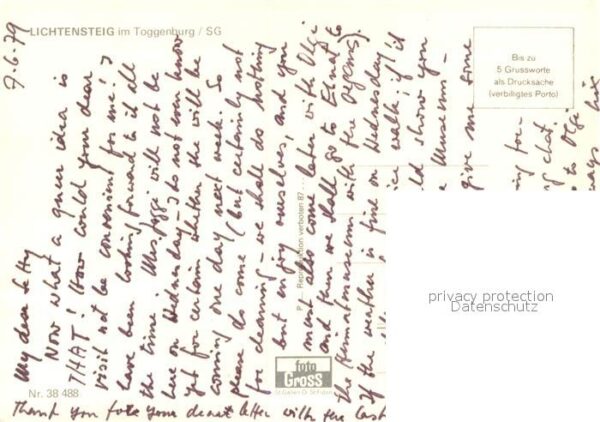 LICHTENSTEIG im Toggenburg / SG
7.6.79
My dear Letty
Now what a queer idea is
THAT! How could your dear
visit not be convenient for me! I
have been looking forward to it all
the time. Miss Jäggi will not be
here on Wednesday - I do not know
yet for certain whether she will be
coming one day next week. So
please do come (but certainly not
for cleaning - we shall do nothing
but enjoy ourselves, and you
must also come later with Olgi
and then we shall go to Ebnat to
the museum with the organs).
If the weather is fine on Wednesday
nice walk; if it
could show you
the Museum -
give me some
chat.
to Olgi
Bis zu
5 Grussworte
als Drucksache
(verbilligtes Porto)
Reproduktion verboten 87
foto
Gross
Nr. 38 488
Thank you for your dearest letter with the last
privacy protection
Datenschutz